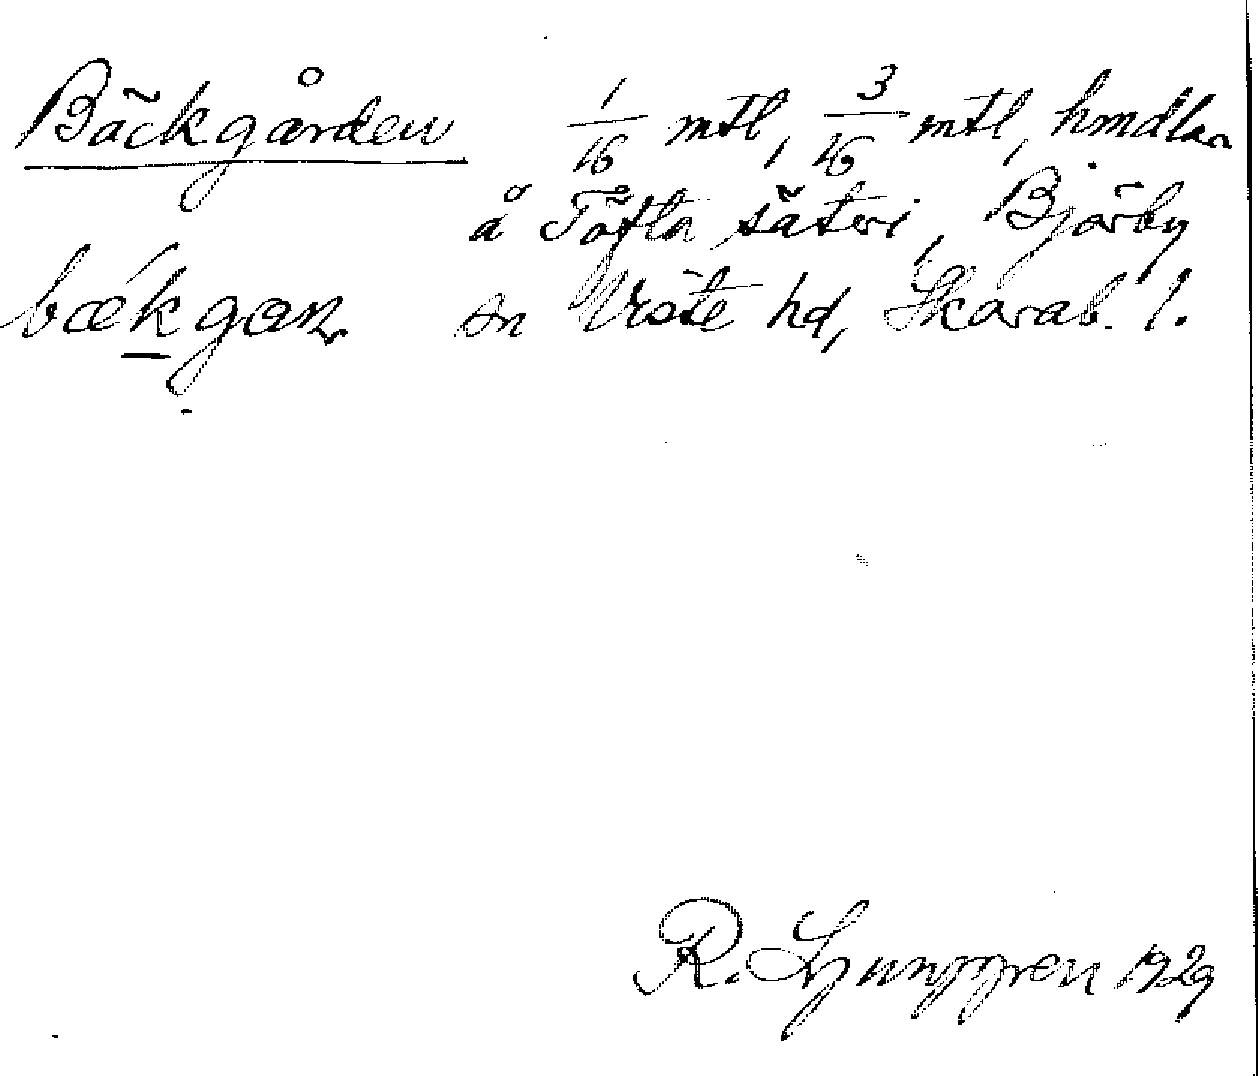 Bäckgården 1/16 mtl, 3/16 mtl, hmdlar
å Tofta säteri, Bjärby
bækgaɳ sn Viste hd, Skarab. l.
R. Ljunggren 1929